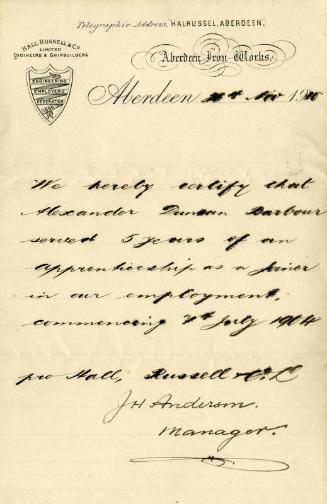 Telegraphic Address, HALRUSSEL, ABERDEEN.
HALL, RUSSELL & Co
LIMITED
ENGINEERS & SHIPBUILDERS
ENGINEERING
EMPLOYERS'
FEDERATION
Aberdeen Iron Works,
Aberdeen Nov 1910
We hereby certify that
Alexander Duncan Barbour
served 5 years of an
apprenticeship as a Joiner
in our employment,
commencing 4th July 1904
pro Hall, Russell & Co. Ld
J H Anderson.
Manager.